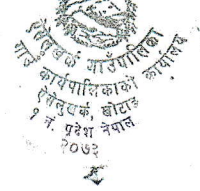 ऐसेलुखर्क गाउँपालिका
गाउँ कार्यपालिकाको कार्यालय
ऐसेलुखर्क, खोटाङ
१ नं. प्रदेश नेपाल
२०७३